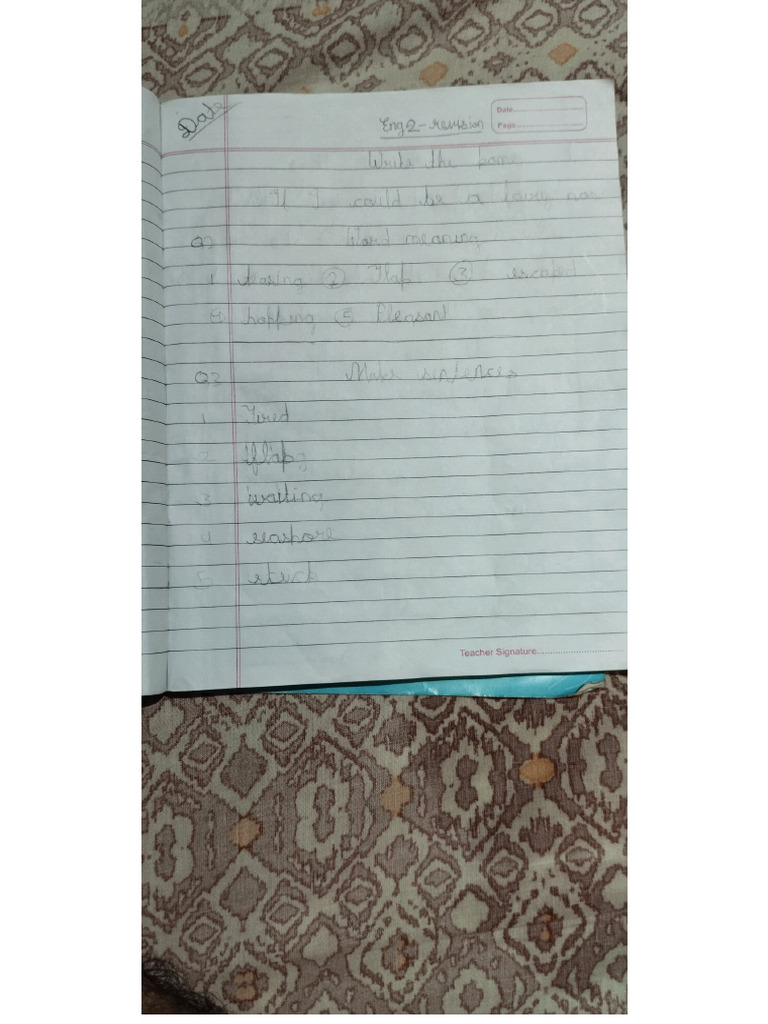 Date
Eng 2 - revision
Date
Page
Write the pome
If I could be a
Q1 Word meaning
1 tearing ② Flap ③ escaped
④ hopping ⑤ Pleasant
Q2 Make sentences
1 Tired
2 flap
3 waiting
4 seashore
5 stuck
Teacher Signature